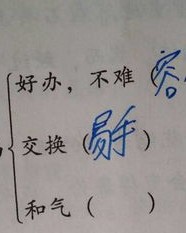 好办，不难（容
交换（易手）
和气（　　）